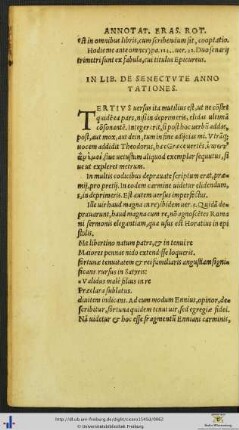 ANNOTAT. ERAS. ROT.
est in omnibus libris, cum scribendum sit, cooptatio.
Hoc item e ante omnes ver. 32. Duo senarij
trimetri sunt ex fabula, cui titulus Epicureus.
IN LIB. DE SENECTVTE ANNO
TATIONES.
TERTIVS uersus ita mutilus est, ut ne consset
quidē ea pars, nisi in deprimeris, elidas ultimā
cōsonantē. Integer erit, si post hoc uerbū addas,
post, aut mox, aut dein, tum in fine adijcias mi.
uocem addidit Theodorus, hac Græce uertēs,
siue uetustum aliquod exemplar sequutus, si
ue ut expleret metrum.
In multis codicibus deprauate scriptum erat, præ-
mij, pro pretij. In eodem carmine uidetur elidendum,
s, in deprimeris. Est autem uersus imperfectus.
Ille uir haud magna cū re, ibidem uer. Quidā de-
prauarunt, haud magna cum re, nō agnoscētes Roma
ni sermonis elegantiam, qua usus est Horatius in epi
stolis,
Me libertino natum patre, & in tenui re
Maiores pennas nido extendisse loqueris.
fortunæ tenuitatem & rei familiaris angustiam signi-
ficans rursus in Satyris:
At Validus male filius in re
Præclara sublatus.
diuitem indicans. Ad eum modum Ennius, opinor, de-
scribitur, fortuna quidem tenui uir, sed egregia fidei.
Nā uidetur & hoc esse fragmentū Enniani carminis,
http://dl.ub.uni-freiburg.de/diglit/cicero1545/0662
© Universitätsbibliothek Freiburg